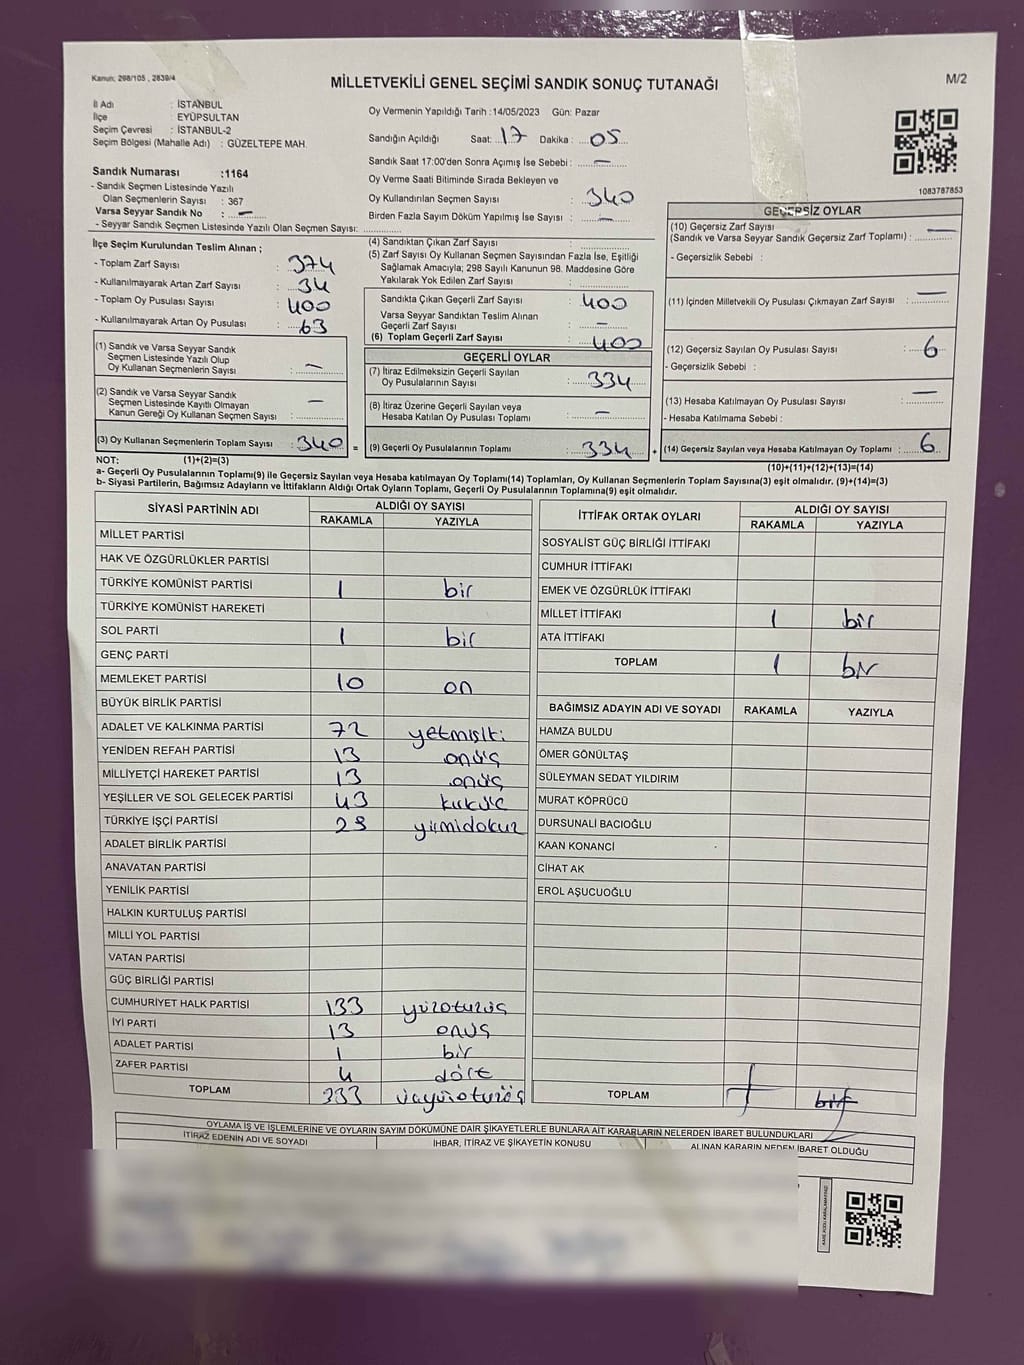 Kanun; 298/105 , 2839/4
MİLLETVEKİLİ GENEL SEÇİMİ SANDIK SONUÇ TUTANAĞI
M/2
İl Adı : İSTANBUL
İlçe : EYÜPSULTAN
Seçim Çevresi : İSTANBUL-2
Seçim Bölgesi (Mahalle Adı) : GÜZELTEPE MAH.
Oy Vermenin Yapıldığı Tarih :14/05/2023 Gün: Pazar
Sandığın Açıldığı Saat: 17 Dakika : 05
Sandık Saat 17:00'den Sonra Açımış İse Sebebi : —
Oy Verme Saati Bitiminde Sırada Bekleyen ve
Oy Kullandırılan Seçmen Sayısı : 340
Birden Fazla Sayım Döküm Yapılmış İse Sayısı : —
1083787853
Sandık Numarası :1164
- Sandık Seçmen Listesinde Yazılı
Olan Seçmenlerin Sayısı : 367
Varsa Seyyar Sandık No : —
- Seyyar Sandık Seçmen Listesinde Yazılı Olan Seçmen Sayısı:
İlçe Seçim Kurulundan Teslim Alınan ;
- Toplam Zarf Sayısı : 374
- Kullanılmayarak Artan Zarf Sayısı : 34
- Toplam Oy Pusulası Sayısı : 400
- Kullanılmayarak Artan Oy Pusulası : 63
(1) Sandık ve Varsa Seyyar Sandık
Seçmen Listesinde Yazılı Olup
Oy Kullanan Seçmenlerin Sayısı : —
(2) Sandık ve Varsa Seyyar Sandık
Seçmen Listesinde Kayıtlı Olmayan
Kanun Gereği Oy Kullanan Seçmen Sayısı : —
(3) Oy Kullanan Seçmenlerin Toplam Sayısı : 340 =
(4) Sandıktan Çıkan Zarf Sayısı :
(5) Zarf Sayısı Oy Kullanan Seçmen Sayısından Fazla İse, Eşitliği
Sağlamak Amacıyla; 298 Sayılı Kanunun 98. Maddesine Göre
Yakılarak Yok Edilen Zarf Sayısı :
Sandıkta Çıkan Geçerli Zarf Sayısı : 400
Varsa Seyyar Sandıktan Teslim Alınan
Geçerli Zarf Sayısı : —
(6) Toplam Geçerli Zarf Sayısı : 400
GEÇERLİ OYLAR
(7) İtiraz Edilmeksizin Geçerli Sayılan
Oy Pusulalarının Sayısı : 334
(8) İtiraz Üzerine Geçerli Sayılan veya
Hesaba Katılan Oy Pusulaları Toplamı : —
(9) Geçerli Oy Pusulalarının Toplamı : 334 +
GEÇERSİZ OYLAR
(10) Geçersiz Zarf Sayısı
(Sandık ve Varsa Seyyar Sandık Geçersiz Zarf Toplamı) : —
- Geçersizlik Sebebi :
(11) İçinden Milletvekili Oy Pusulası Çıkmayan Zarf Sayısı : —
(12) Geçersiz Sayılan Oy Pusulası Sayısı : 6
- Geçersizlik Sebebi :
(13) Hesaba Katılmayan Oy Pusulası Sayısı : —
- Hesaba Katılmama Sebebi :
(14) Geçersiz Sayılan veya Hesaba Katılmayan Oy Toplamı : 6
NOT: (1)+(2)=(3)
(10)+(11)+(12)+(13)=(14)
a- Geçerli Oy Pusulalarının Toplamı(9) ile Geçersiz Sayılan veya Hesaba katılmayan Oy Toplamı(14) Toplamları, Oy Kullanan Seçmenlerin Toplam Sayısına(3) eşit olmalıdır. (9)+(14)=(3)
b- Siyasi Partilerin, Bağımsız Adayların ve İttifakların Aldığı Ortak Oyların Toplamı, Geçerli Oy Pusulalarının Toplamına(9) eşit olmalıdır.
SİYASİ PARTİNİN ADI ALDIĞI OY SAYISI
RAKAMLA YAZIYLA
MİLLET PARTİSİ
HAK VE ÖZGÜRLÜKLER PARTİSİ
TÜRKİYE KOMÜNİST PARTİSİ 1 bir
TÜRKİYE KOMÜNİST HAREKETİ
SOL PARTİ 1 bir
GENÇ PARTİ
MEMLEKET PARTİSİ 10 on
BÜYÜK BİRLİK PARTİSİ
ADALET VE KALKINMA PARTİSİ 72 yetmişiki
YENİDEN REFAH PARTİSİ 13 onüç
MİLLİYETÇİ HAREKET PARTİSİ 13 onüç
YEŞİLLER VE SOL GELECEK PARTİSİ 43 kırküç
TÜRKİYE İŞÇİ PARTİSİ 29 yirmidokuz
ADALET BİRLİK PARTİSİ
ANAVATAN PARTİSİ
YENİLİK PARTİSİ
HALKIN KURTULUŞ PARTİSİ
MİLLİ YOL PARTİSİ
VATAN PARTİSİ
GÜÇ BİRLİĞİ PARTİSİ
CUMHURİYET HALK PARTİSİ 133 yüzotuzüç
İYİ PARTİ 13 onüş
ADALET PARTİSİ 1 bir
ZAFER PARTİSİ 4 dört
TOPLAM 333 üçyüzotuzüç
İTTİFAK ORTAK OYLARI ALDIĞI OY SAYISI
RAKAMLA YAZIYLA
SOSYALİST GÜÇ BİRLİĞİ İTTİFAKI
CUMHUR İTTİFAKI
EMEK VE ÖZGÜRLÜK İTTİFAKI
MİLLET İTTİFAKI 1 bir
ATA İTTİFAKI
TOPLAM 1 bir
BAĞIMSIZ ADAYIN ADI VE SOYADI RAKAMLA YAZIYLA
HAMZA BULDU
ÖMER GÖNÜLTAŞ
SÜLEYMAN SEDAT YILDIRIM
MURAT KÖPRÜCÜ
DURSUNALİ BACIOĞLU
KAAN KONANCİ
CİHAT AK
EROL AŞUCUOĞLU
TOPLAM
OYLAMA İŞ VE İŞLEMLERİNE VE OYLARIN SAYIM DÖKÜMÜNE DAİR ŞİKAYETLERLE BUNLARA AİT KARARLARIN NELERDEN İBARET BULUNDUKLARI
İTİRAZ EDENİN ADI VE SOYADI İHBAR, İTİRAZ VE ŞİKAYETİN KONUSU ALINAN KARARIN NEDEN İBARET OLDUĞU